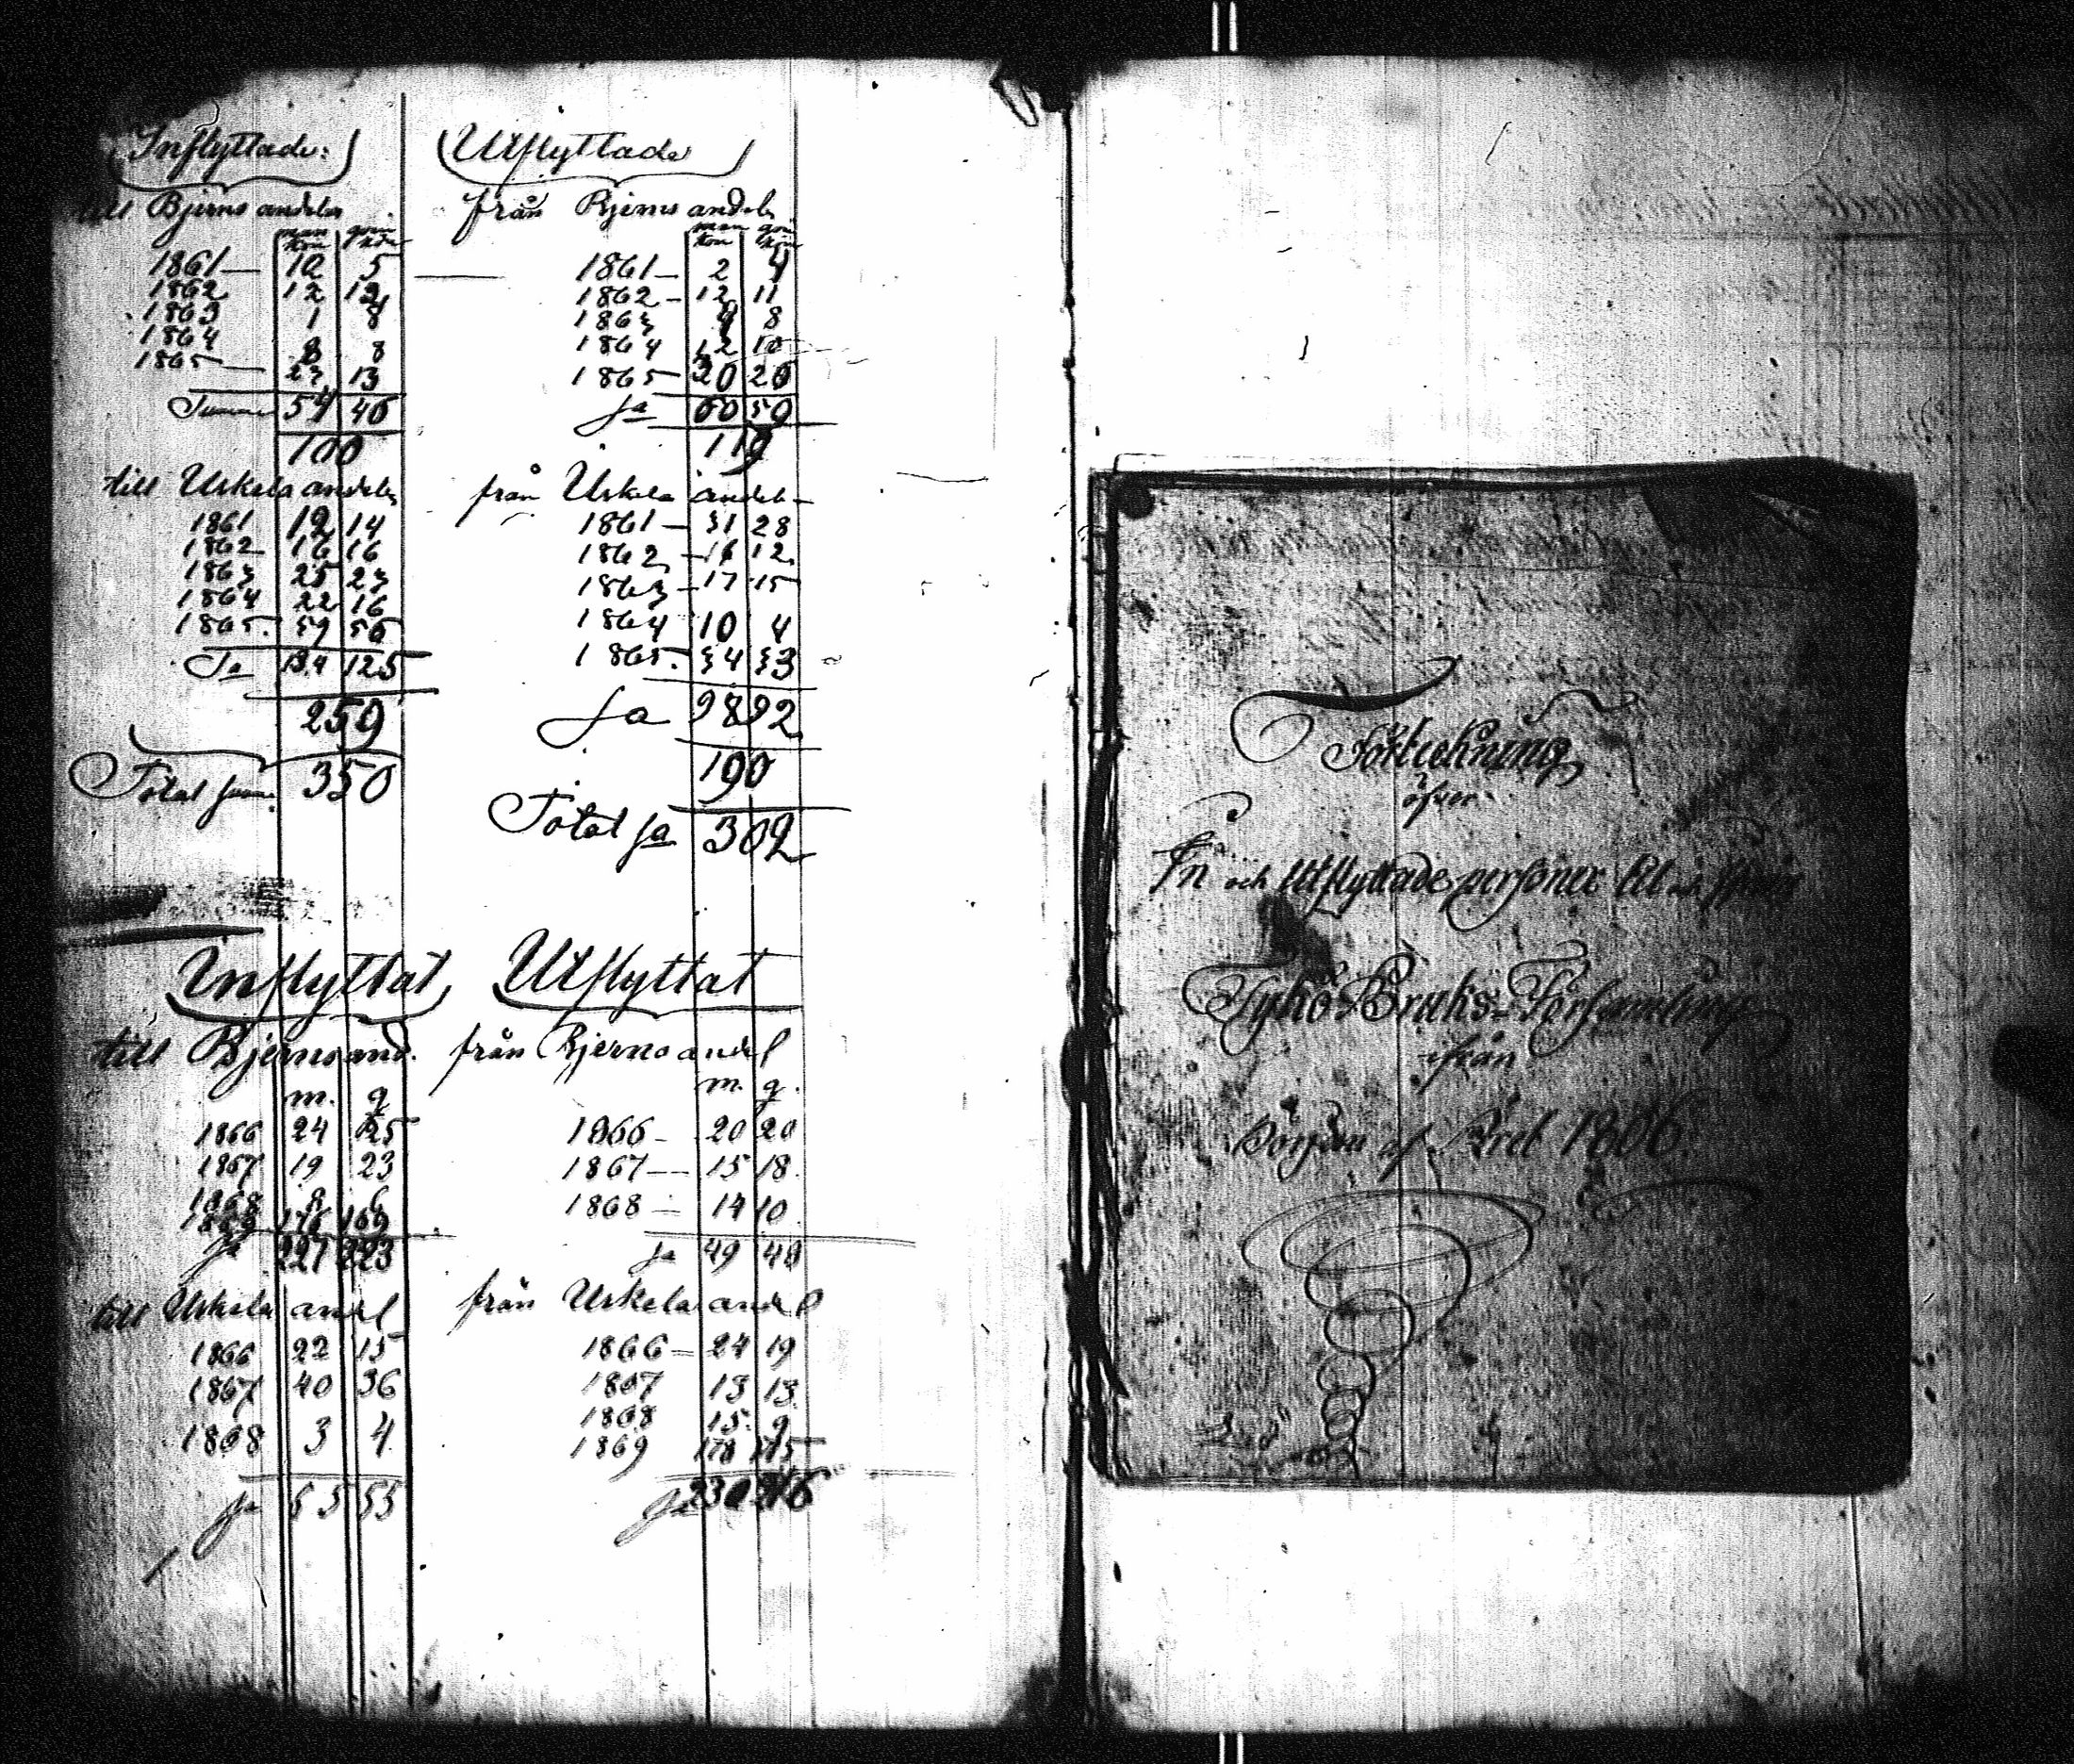 Inflyttade:
till Bjerno andelen
man kön qvin kön
1861 — 10 5
1862 12 12
1863 1 8
1864 8 8
1865 — 23 13
Summa 54 46
100
till Uskela andelen
1861 12 14
1862 16 16
1863 25 23
1864 22 16
1865. 59 56
Sa 134 125
259
Total sum. 350
Utflyttade
från Bjerno andeln
man kön qvin kön
1861 — 2 4
1862 — 12 11
1863 8
1864 12 10
1865 20 26
Sa 60 59
119
från Uskela andeln
1861 — 31 28
1862 — 16 12
1863 — 17 15
1864 10 4
1865. 34 33
Sa 98 92
190
Total Sa 309
Inflyttat
till Bjerno and.
m. q
1866 24 25
1867 19 23
1868 8 6
1869 176 169
Sa 227 223
till Uskela andel
1866 22 15
1867 40 36
1868 3 4
Sa 65 55
Utflyttat
från Bjerno andel
m. q.
1866 — 20 20
1867 — 15 18
1868 — 14 10
Sa 49 48
från Uskela andel
1866 — 24 19
1867 13 13
1868 15 9
1869 178 175
Sa 230 216
Förteckning
öfver
In och Utflyttade personer til och ifrån
Tykö Bruks-Församling
ifrån
början af Året 1806.